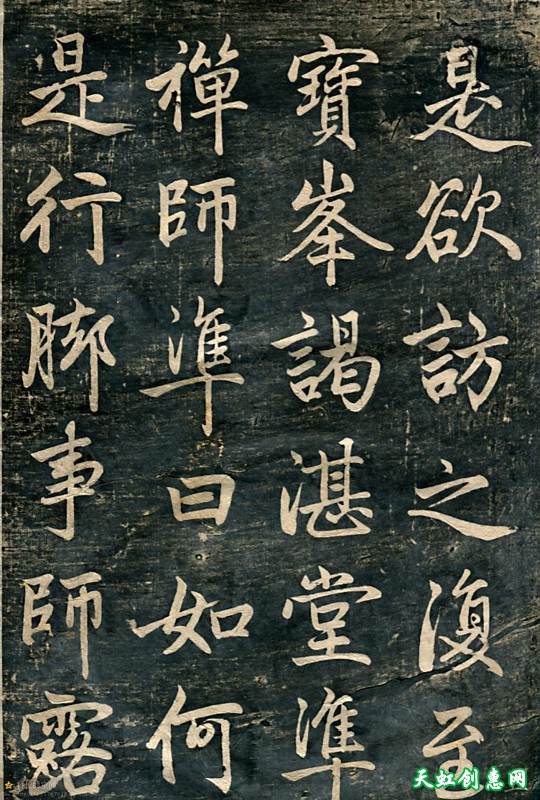 是欲訪之復至
寶峯謁湛堂準
禪師準曰如何
是行脚事師露
天虹创惠网